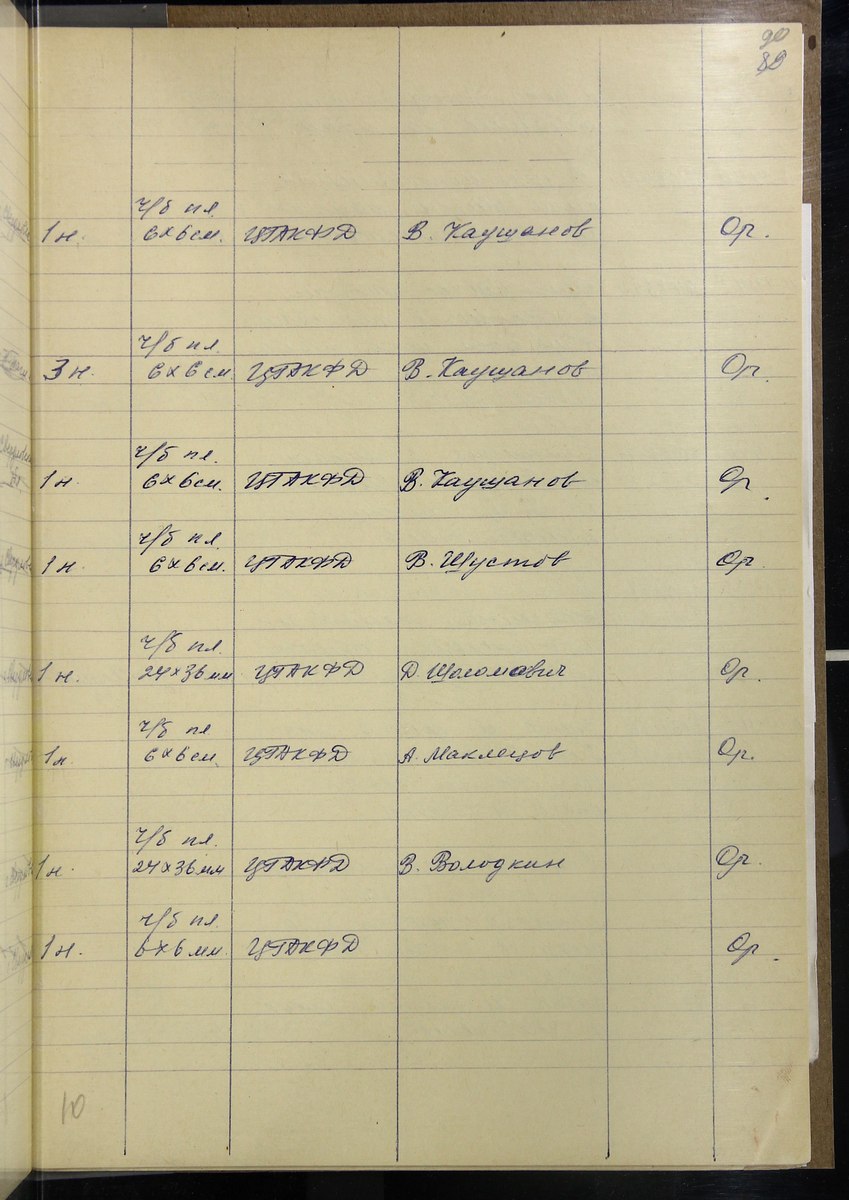 90
89
ч/б пл.
1 н. 6×6 см. ЦГАКФД В. Каушанов Ор.
ч/б пл.
3 н. 6×6 см. ЦГАКФД В. Каушанов Ор.
ч/б пл.
1 н. 6×6 см. ЦГАКФД В. Каушанов Ор.
ч/б пл.
1 н. 6×6 см. ЦГАКФД В. Шустов Ор.
ч/б пл.
1 н. 24×36 мм ЦГАКФД Д. Шоломович Ор.
ч/б пл
1 н. 6×6 см. ЦГАКФД А. Маклецов Ор.
ч/б пл.
1 н. 24×36 мм ЦГАКФД В. Володкин Ор.
ч/б пл.
1 н. 6×6 мм. ЦГАКФД Ор.
10